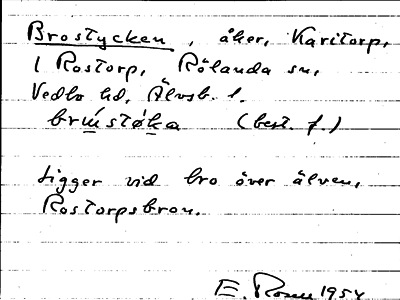 Brostycken, åker, Karitorp,
1 Rostorp, Rölanda sn,
Vedbo hd, Älvsb. l.
brù́stø̀ka (best. f.)
Ligger vid bro över älven,
Rostorpsbron.
E. 1954